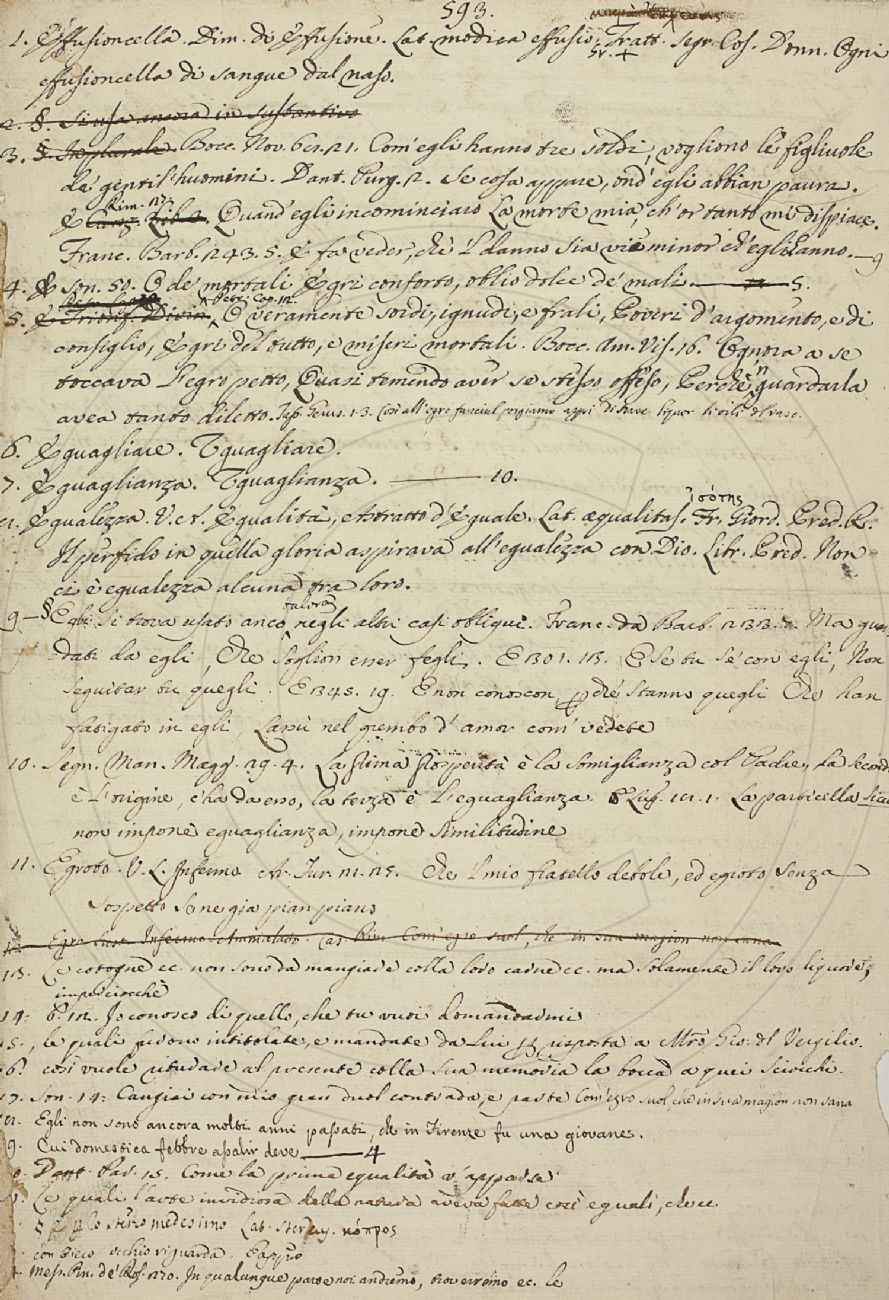 593.
1. Effusioncella. Dim. di Effusione. Lat. modica effusio. Tratt. segr. Cos. Donn. Ogni
effusioncella di sangue dal naso.
2. §. Si usa ancora in sustantivo
3. § In plurale. Bocc. Nov. 60. 21. Com' egli hanno tre soldi, vogliono le figliuole
de' gentil' huomini. Dant. Purg. 12. Se cosa appare, ond' egli abbian paura.
Rim.
E Canz. Lib. Quand' egli incominciaro La morte mia, ch' or tanto mi dispiace.
Franc. Barb. 243. 5. E fa veder, che 'l danno sia vie minor ch' egli hanno. — 9
4. E son. 50. O de' mortali Egri conforto, oblio dolce de' mali. — 5.
Petr. Cap. 12.
5. E Trionf. Divin. O veramente sordi, ignudi, e frali, Poveri d' argomento, e di
consiglio, Egri del tutto, e miseri mortali. Bocc. Am. Vis. 16. Ognora a se
toccava l' egro petto, Quasi temendo aver se stesso offeso, Perchè 'n guardarla
avea tanto diletto. Tass. Gerus. 1. 3. Così all' egro fanciul porgiamo aspri Di soave liquor gli orli del vaso.
6. Eguagliare. Uguagliare.
7. Eguaglianza. Uguaglianza. — 10.
ἰσότης
8. Egualezza. V. A. Egualità, Astratto d' Eguale. Lat. æqualitas. Fr. Giord. Pred. R.
Il perfido in quella gloria aspirava all' egualezza con Dio. Libr. Pred. Non
ci è egualezza alcuna tra loro.
talora
9 — § Egli si trova usato anco negli altri casi obliqui. Franc. da Barb. 233. Ma guar
dati da egli, Che soglion esser fegli. E 301. 13. E se tu se' con egli, Non
seguitar tu quegli. E 345. 19. E non conoscon, perchè stanno quegli Che han
fatigato in egli, Lassù nel grembo d' amor com' vedete
10. Segn. Man. Magg. 29. 4. La prima prosperità è la somiglianza col Padre, la second
è l' origine, c' ha da esso, la terza è l' eguaglianza. E Lugl. 1. La particella sicut
non impone eguaglianza, impone similitudine
11. Egroto. V. L. Infermo Ar. Fur. Che 'l mio fratello debole, ed egroto Senza
sospetto se ne gia pian piano
Egro Sust. Infermo. Ammalato. Cas. Rim. Com' egro suol, che in sua magion non sana
13. Le cotogne ec. non sono da mangiare colla loro carne ec. ma solamente il loro liquore,
imperciocchè
14. 6. 12. Io conosco di quello, che tu vuoi domandarmi
15. le quali furono intitolate, e mandate da lui per risposta a Mro Gio. del Vergilio.
16. così vuole riturare al presente colla sua memoria la bocca a quei sciocchi.
17. Son. 14. Cangiai con mio gran duol contrada, e parte Com' egro suol, che in sua magion non sana
Egli non sono ancora molti anni passati, che in Firenze fu una giovane.
9. Cui domestica febbre assalir deve — 4
Dant. Par. 15. Come la prima egualità v' apparse
Le quali l' arte invidiosa della natura aveva fatte così eguali, che ec.
§ E per lo sterco medesimo Lat. stercus. κόπρος
con bieco occhio riguarda.
Mess. Cin. de' Ros. 120. In qualunque parte noi andremo, troverremo ec. le